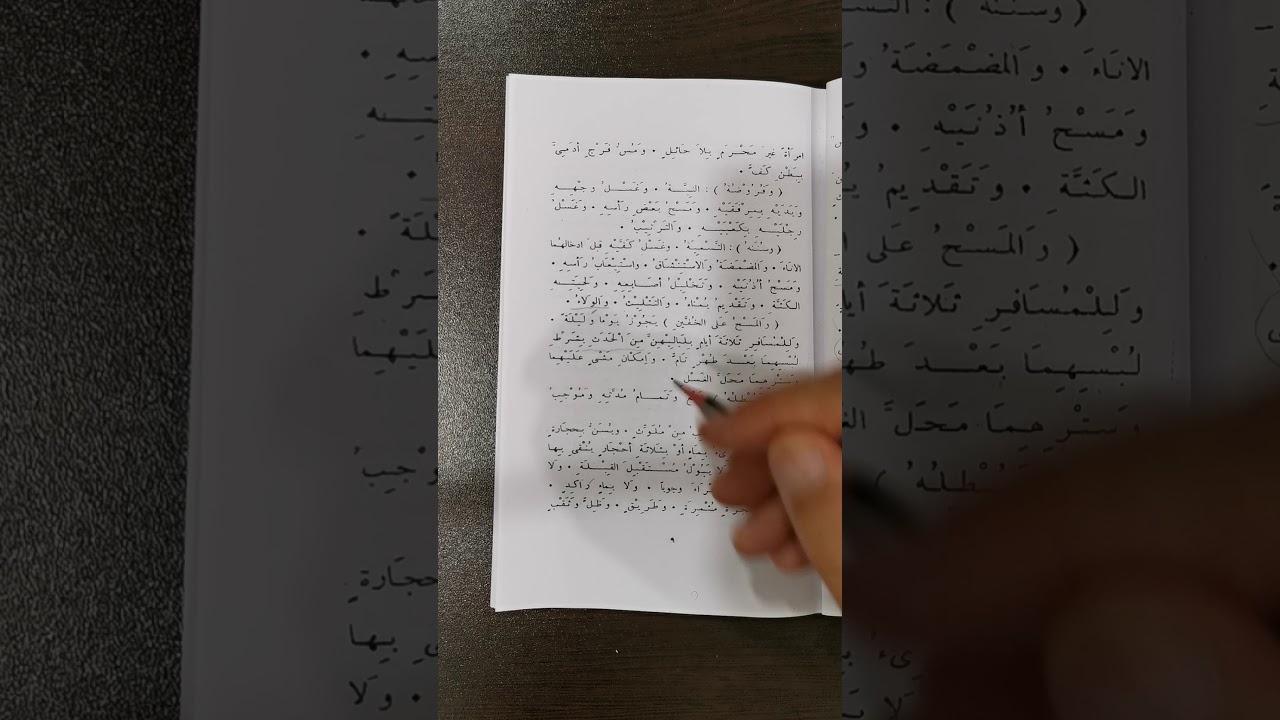 امرأة غيرَ مَحْرَمٍ بِلاَ حَائِلٍ • وَمَسُّ فَرْجِ آدَمِيٍّ
بِبَطْنِ كَفٍّ •
( وَفُرُوْضُهُ ) : النِّيَّةُ • وَغَسْلُ وجْهِهِ
وَيَدَيْهِ بِمِرْفَقَيْهِ • وَمَسْحُ بَعْضِ رَأسِهِ • وَغَسْلُ
رِجْلَيْهِ بِكَعْبَيْهِ • وَالتَرْتِيْبُ •
( وسُنَنُهُ ) : التَّسْمِيَةُ • وَغَسْلُ كَفَّيْهِ قبلَ ادخالِهُما
الانَاءَ • وَالمَضْمَضَةُ وَالاسْتِنْشَاقُ • واسْتِيْعَابُ رَأسِهِ •
وَمَسْحُ أُذُنَيْهِ • وَتَخْلِيْلُ أصَابِعِهِ • وَلِحْيَتِهِ
الكَثَّةِ • وَتَقْدِيمُ يُمْنَاهُ • وَالتَثْلِيْثُ • وَالوِلاَءُ •
( وَالمَسْحُ عَلى الخُفَّيْنِ ) يَجُوْزُ يَوْمًا وَلَيْلَةً •
وَلِلْمُسَافِرِ ثَلاَثَةَ أيامٍ بِلَيَالِيْهِنَّ مِنَ الْحَدَثِ بِشَرْطِ
لُبْسِهِمَا بَعْدَ طُهْرٍ تَامٍّ • وَاِمْكَانِ مَشْيٍ عَلَيْهِمَا
وَسَتْرِهِمَا مَحَلَّ الغَسْلِ •
وَتَمَامُ مُدَّتِهِ وَمُوْجِبُ
مِنْ مُلَوَّثٍ • وَيُسَنُّ بِحِجَارَةٍ
بِمَاءٍ أوْ بِثَلاَثَةِ أحْجَارٍ يُنْقَى بِها
لاَ يَبُوْلُ مُسْتَقْبِلَ القِبْلَةِ • وَلاَ
وجوباً • وَلاَ بِمَاءٍ رَاكِدٍ •
مُثْمِرَةٍ • وَطَرِيْقٍ • وَظِلٍّ وَثَقْبٍ
٩